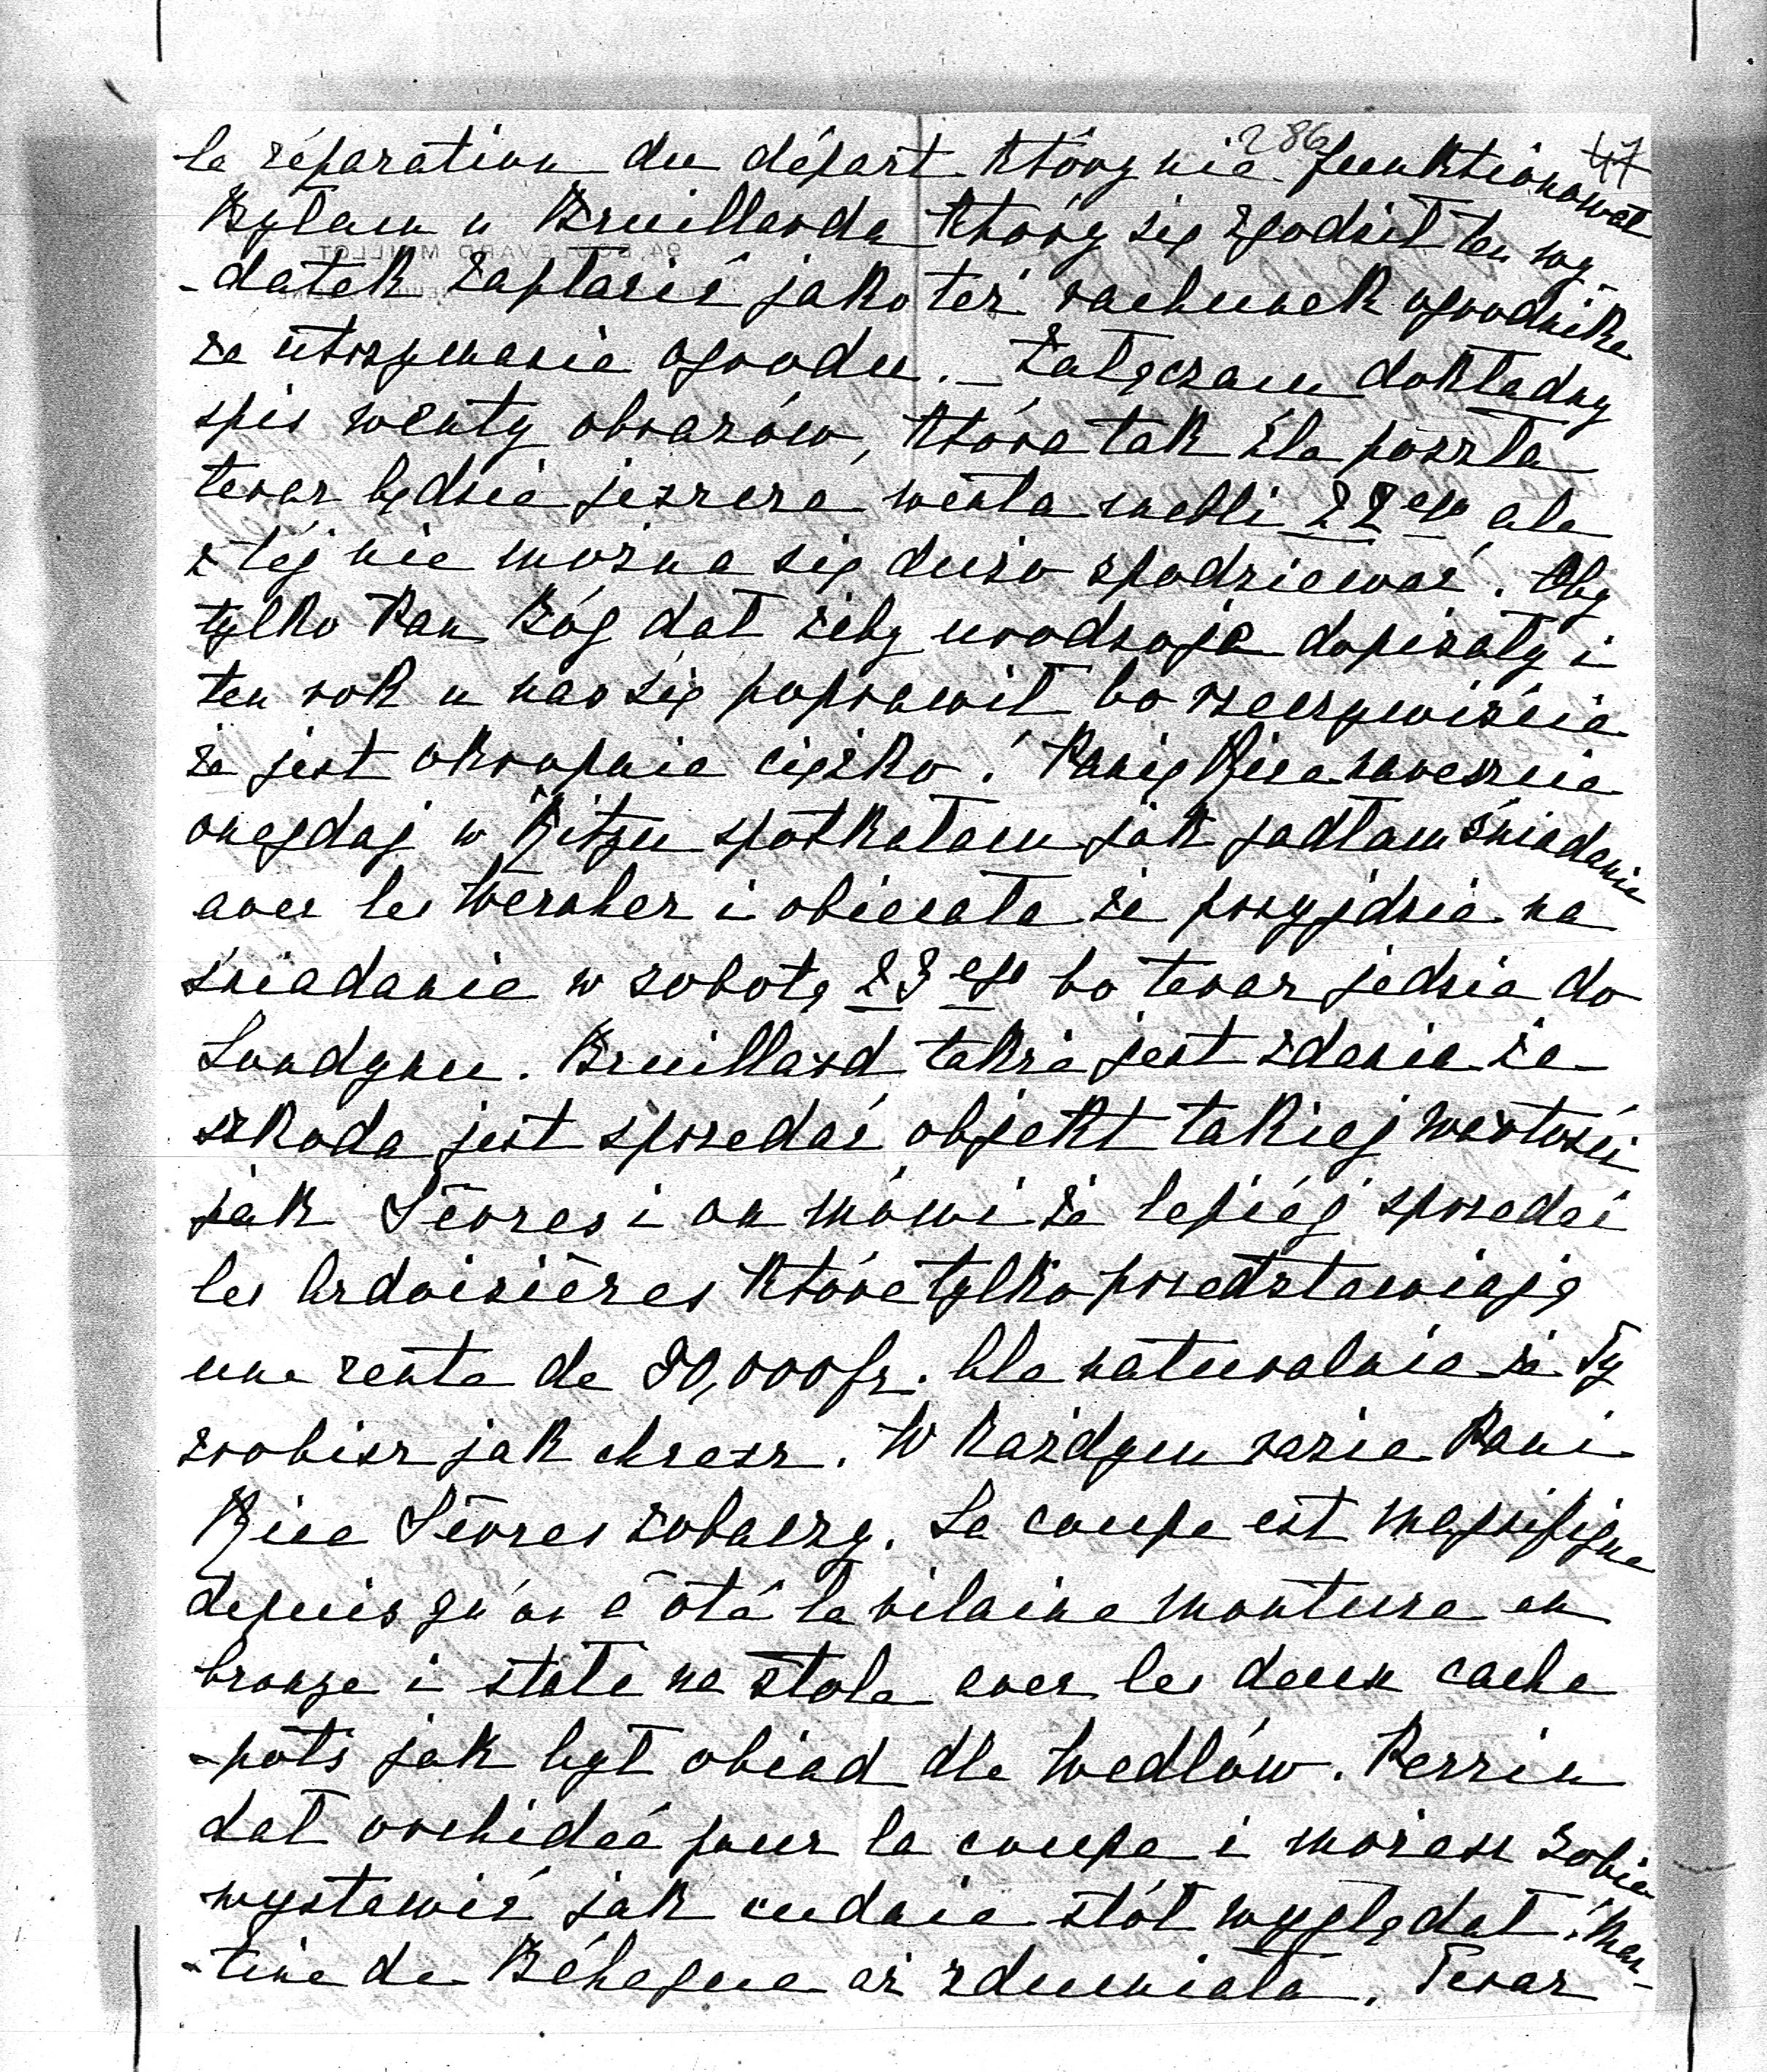 286 47
la réparation du départ który nie funktionował
Byłam u Bruillarda który się zgodził ten wy
-datek zapłacić jako też rachunek ogrodnika
za utrzymanie ogrodu. – Załączam dokładny
spis wenty obrazów, która tak źle poszła
teraz będzie jeszcze wenta mebli 22ego ale
z téj nie można się dużo spodziewać. Oby
tylko Pan Bóg dał żeby urodzaje dopisały i
ten rok u nas się poprawił bo rzeczywiście
że jest okropnie ciężko! Panię Rice nareszcie
onegdaj w Ritzu spotkałam jak jadłam śniadanie
avec les Wernher i obiecała że przyjdzie na
śniadanie w sobotę 23ego bo teraz jedzie do
Londynu. Bruillard także jest zdania że
szkoda jest sprzedać objekt takiej wartości
jak Sèvres i on mówi że lepiéj sprzedać
les Ardoisières które tylko przedstawiają
une rente de 80,000 fr. Ale naturalnie że Ty
zrobisz jak chcesz. W każdym razie Pani
Rice Sèvres zobaczy. La coupe est magnifique
depuis qu'on a ôté la vilaine monture en
bronze i stała na stole avec les deux cache
-pots jak był obiad dla Wedlów. Perrin
dał orchidée pour la coupe i możesz sobie
wystawić jak cudnie stół wyglądał! Mar-
-tine de Béhague aż zdumiała. Teraz